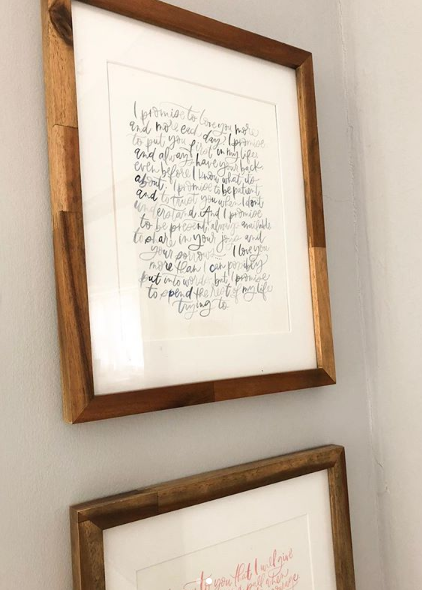 I promise to love you more
and more each day. I promise
to put you first in my life
and always have your back
even before I know what it's
about. I promise to be patient
and to trust you when I don't
understand. And I promise
to be present, always available
to share in your joys and
your sorrows. I love you
more than I can possibly
put into words but I promise
to spend the rest of my life
trying to
to you that I will give